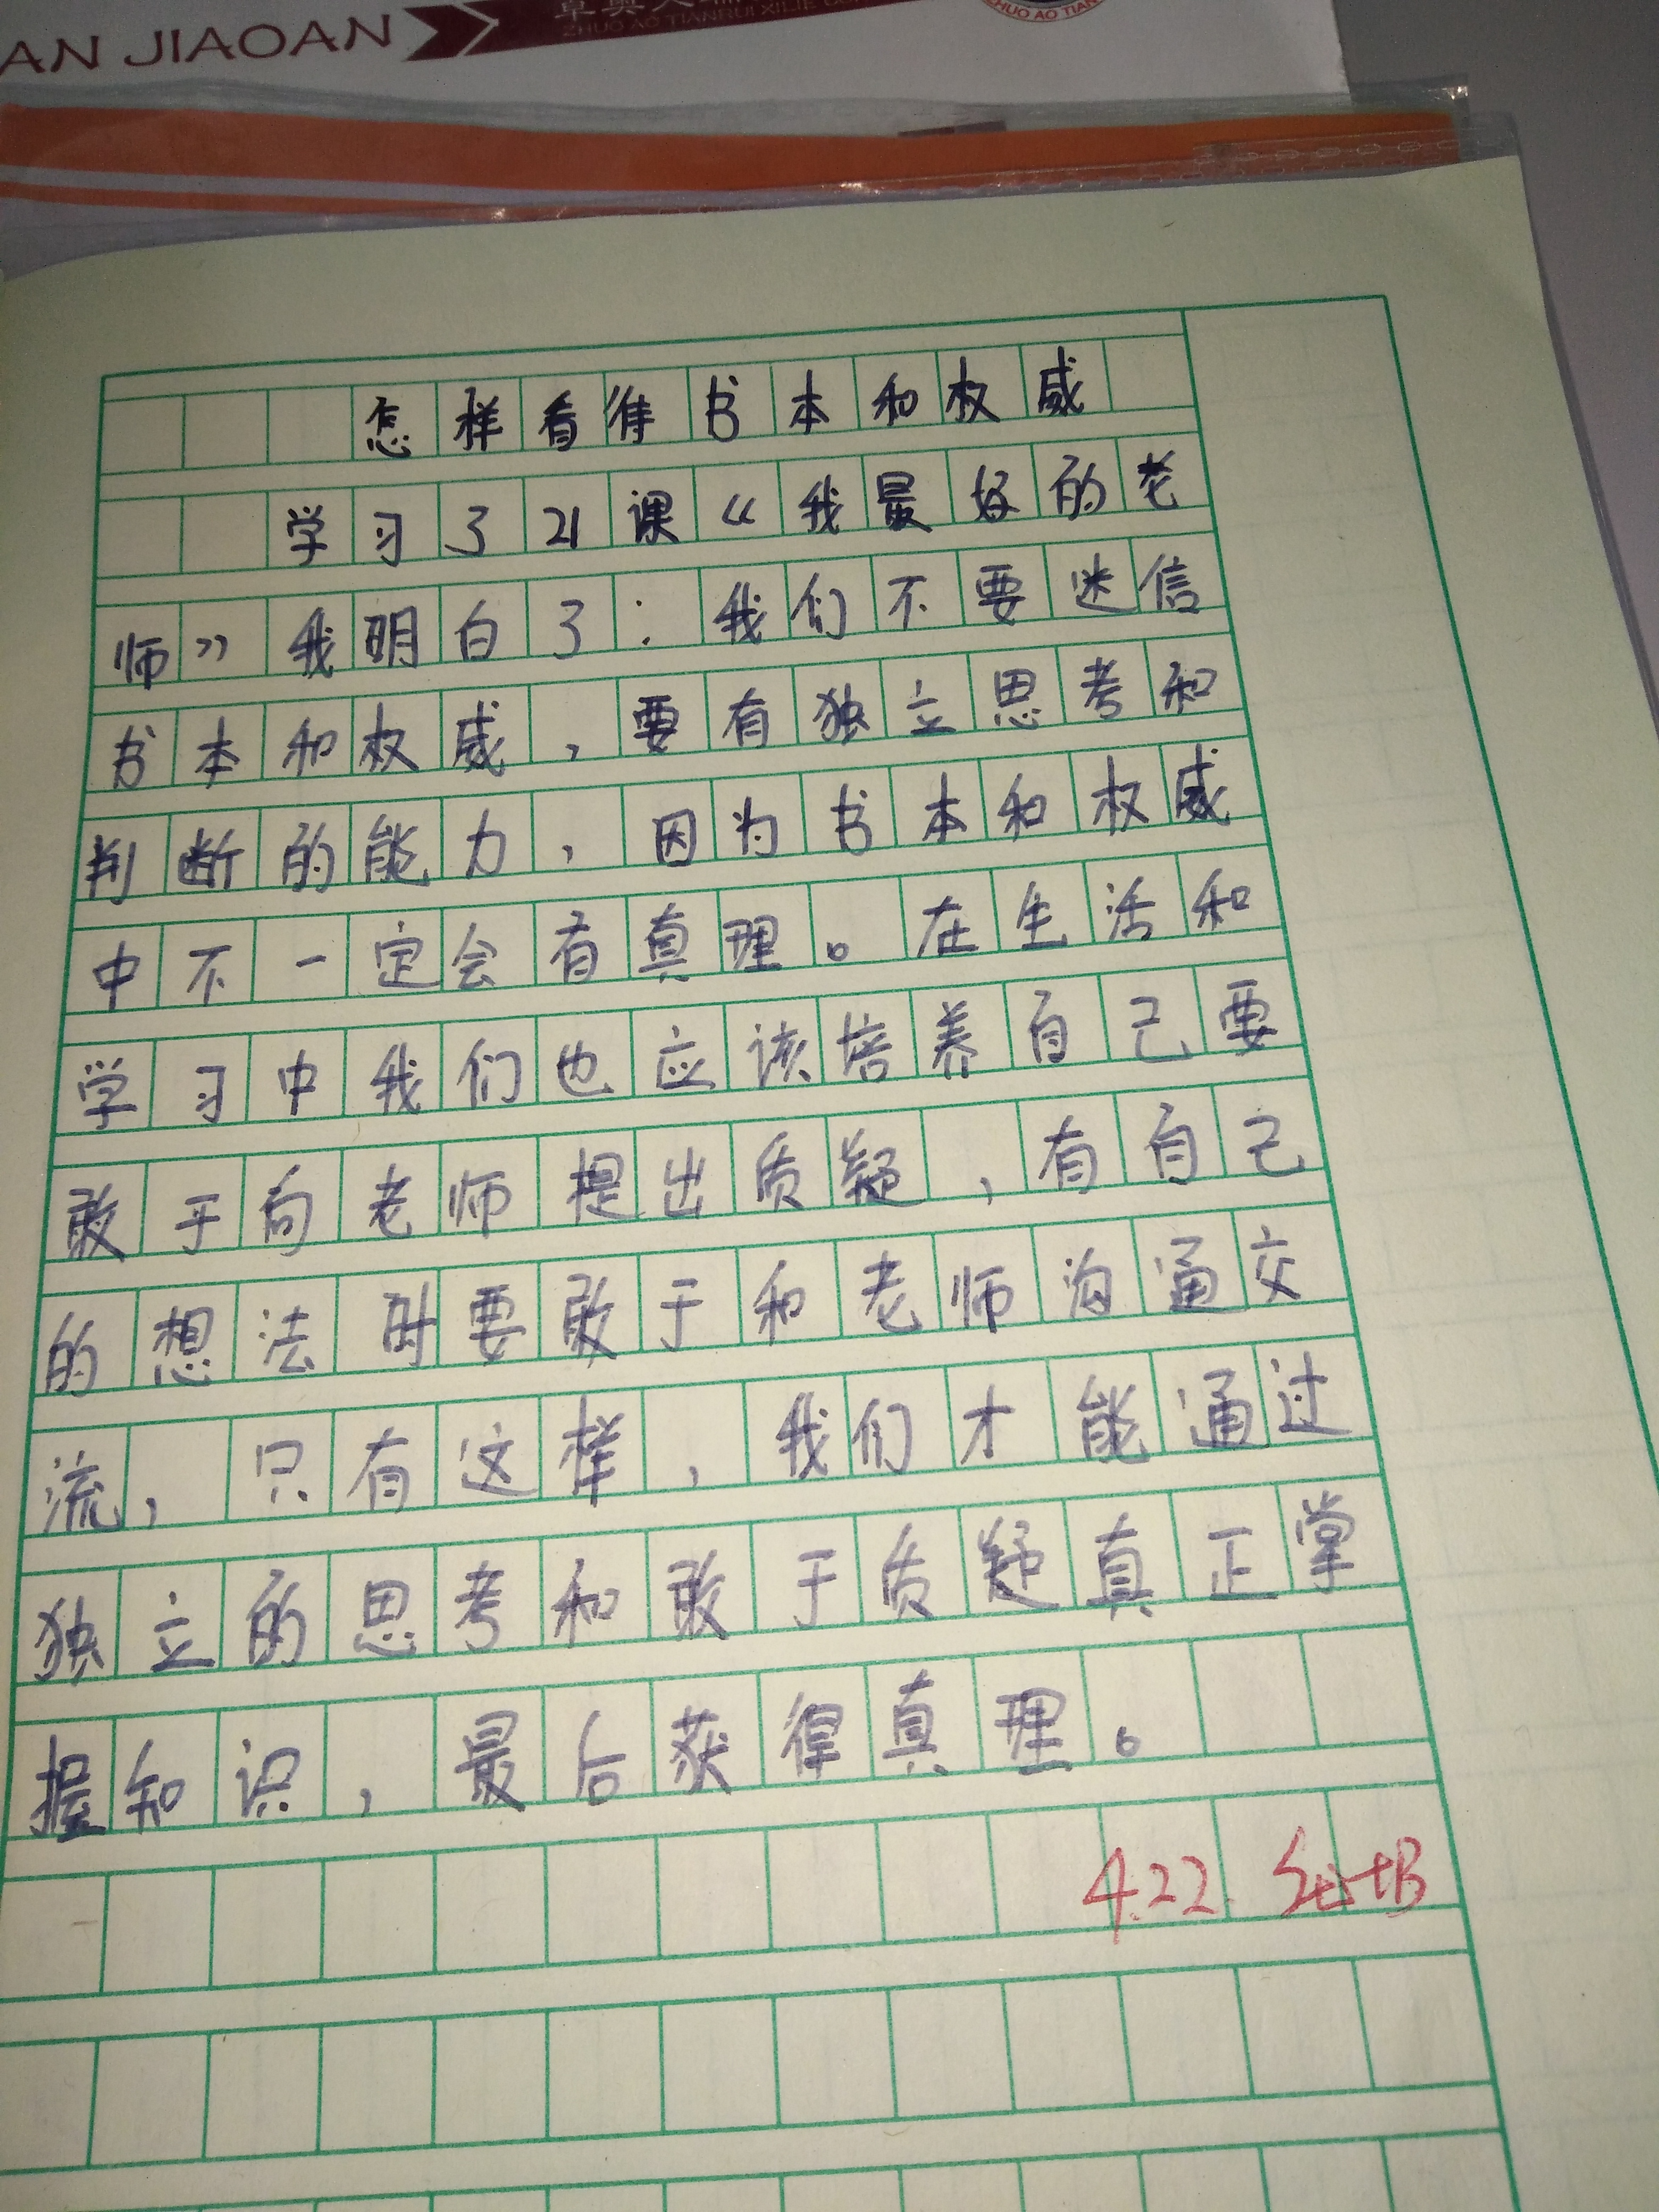 AN JIAOAN
ZHUO AO TIANRUI XILIE
ZHUO AO TIAN
怎样看待书本和权威
学习了21课《我最好的老
师》我明白了：我们不要迷信
书本和权威，要有独立思考和
判断的能力，因为书本和权威
中不一定会有真理。在生活和
学习中我们也应该培养自己要
敢于向老师提出质疑，有自己
的想法时要敢于和老师沟通交
流，只有这样，我们才能通过
独立的思考和敢于质疑真正掌
握知识，最后获得真理。
4.22